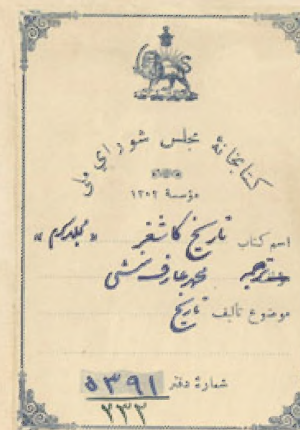 کتابخانهٔ مجلس شورای ملی
مؤسسهٔ ۱۳۰۲
اسم کتاب تاریخ کاشغر
ترجمه محمد عارف منشی
موضوع تألیف تاریخ
شمارهٔ دفتر ۵۳۹۱
۷۳۲